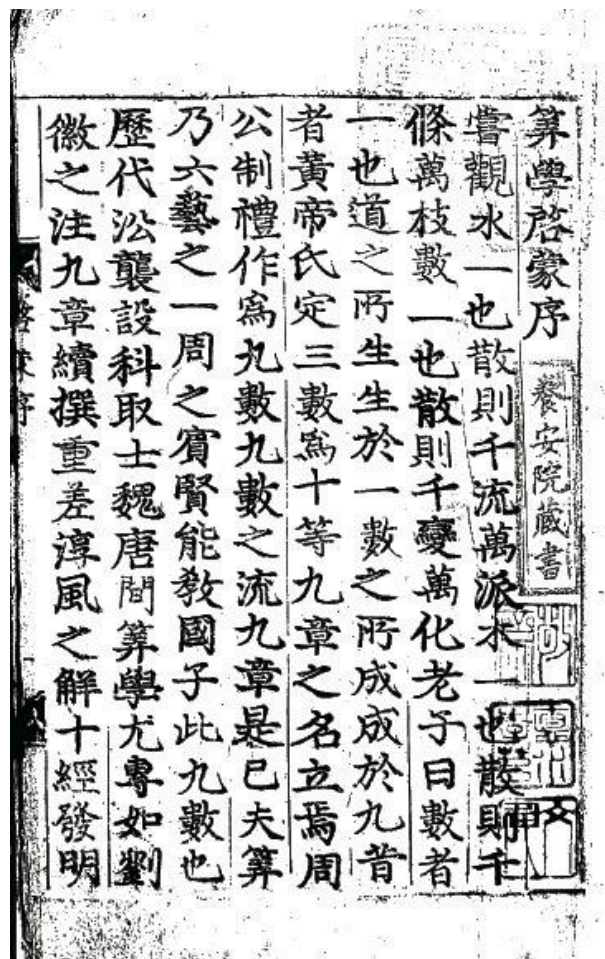 算學啓蒙序
養安院藏書
嘗觀水一也散則千流萬派木一也散則千
條萬枝數一也散則千變萬化老子曰數者
一也道之所生生於一數之所成成於九昔
者黃帝氏定三數爲十等九章之名立焉周
公制禮作爲九數九數之流九章是已夫算
乃六藝之一周之賓賢能敎國子此九數也
歷代沿襲設科取士魏唐間算學尤專如劉
徽之注九章續撰重差淳風之解十經發明